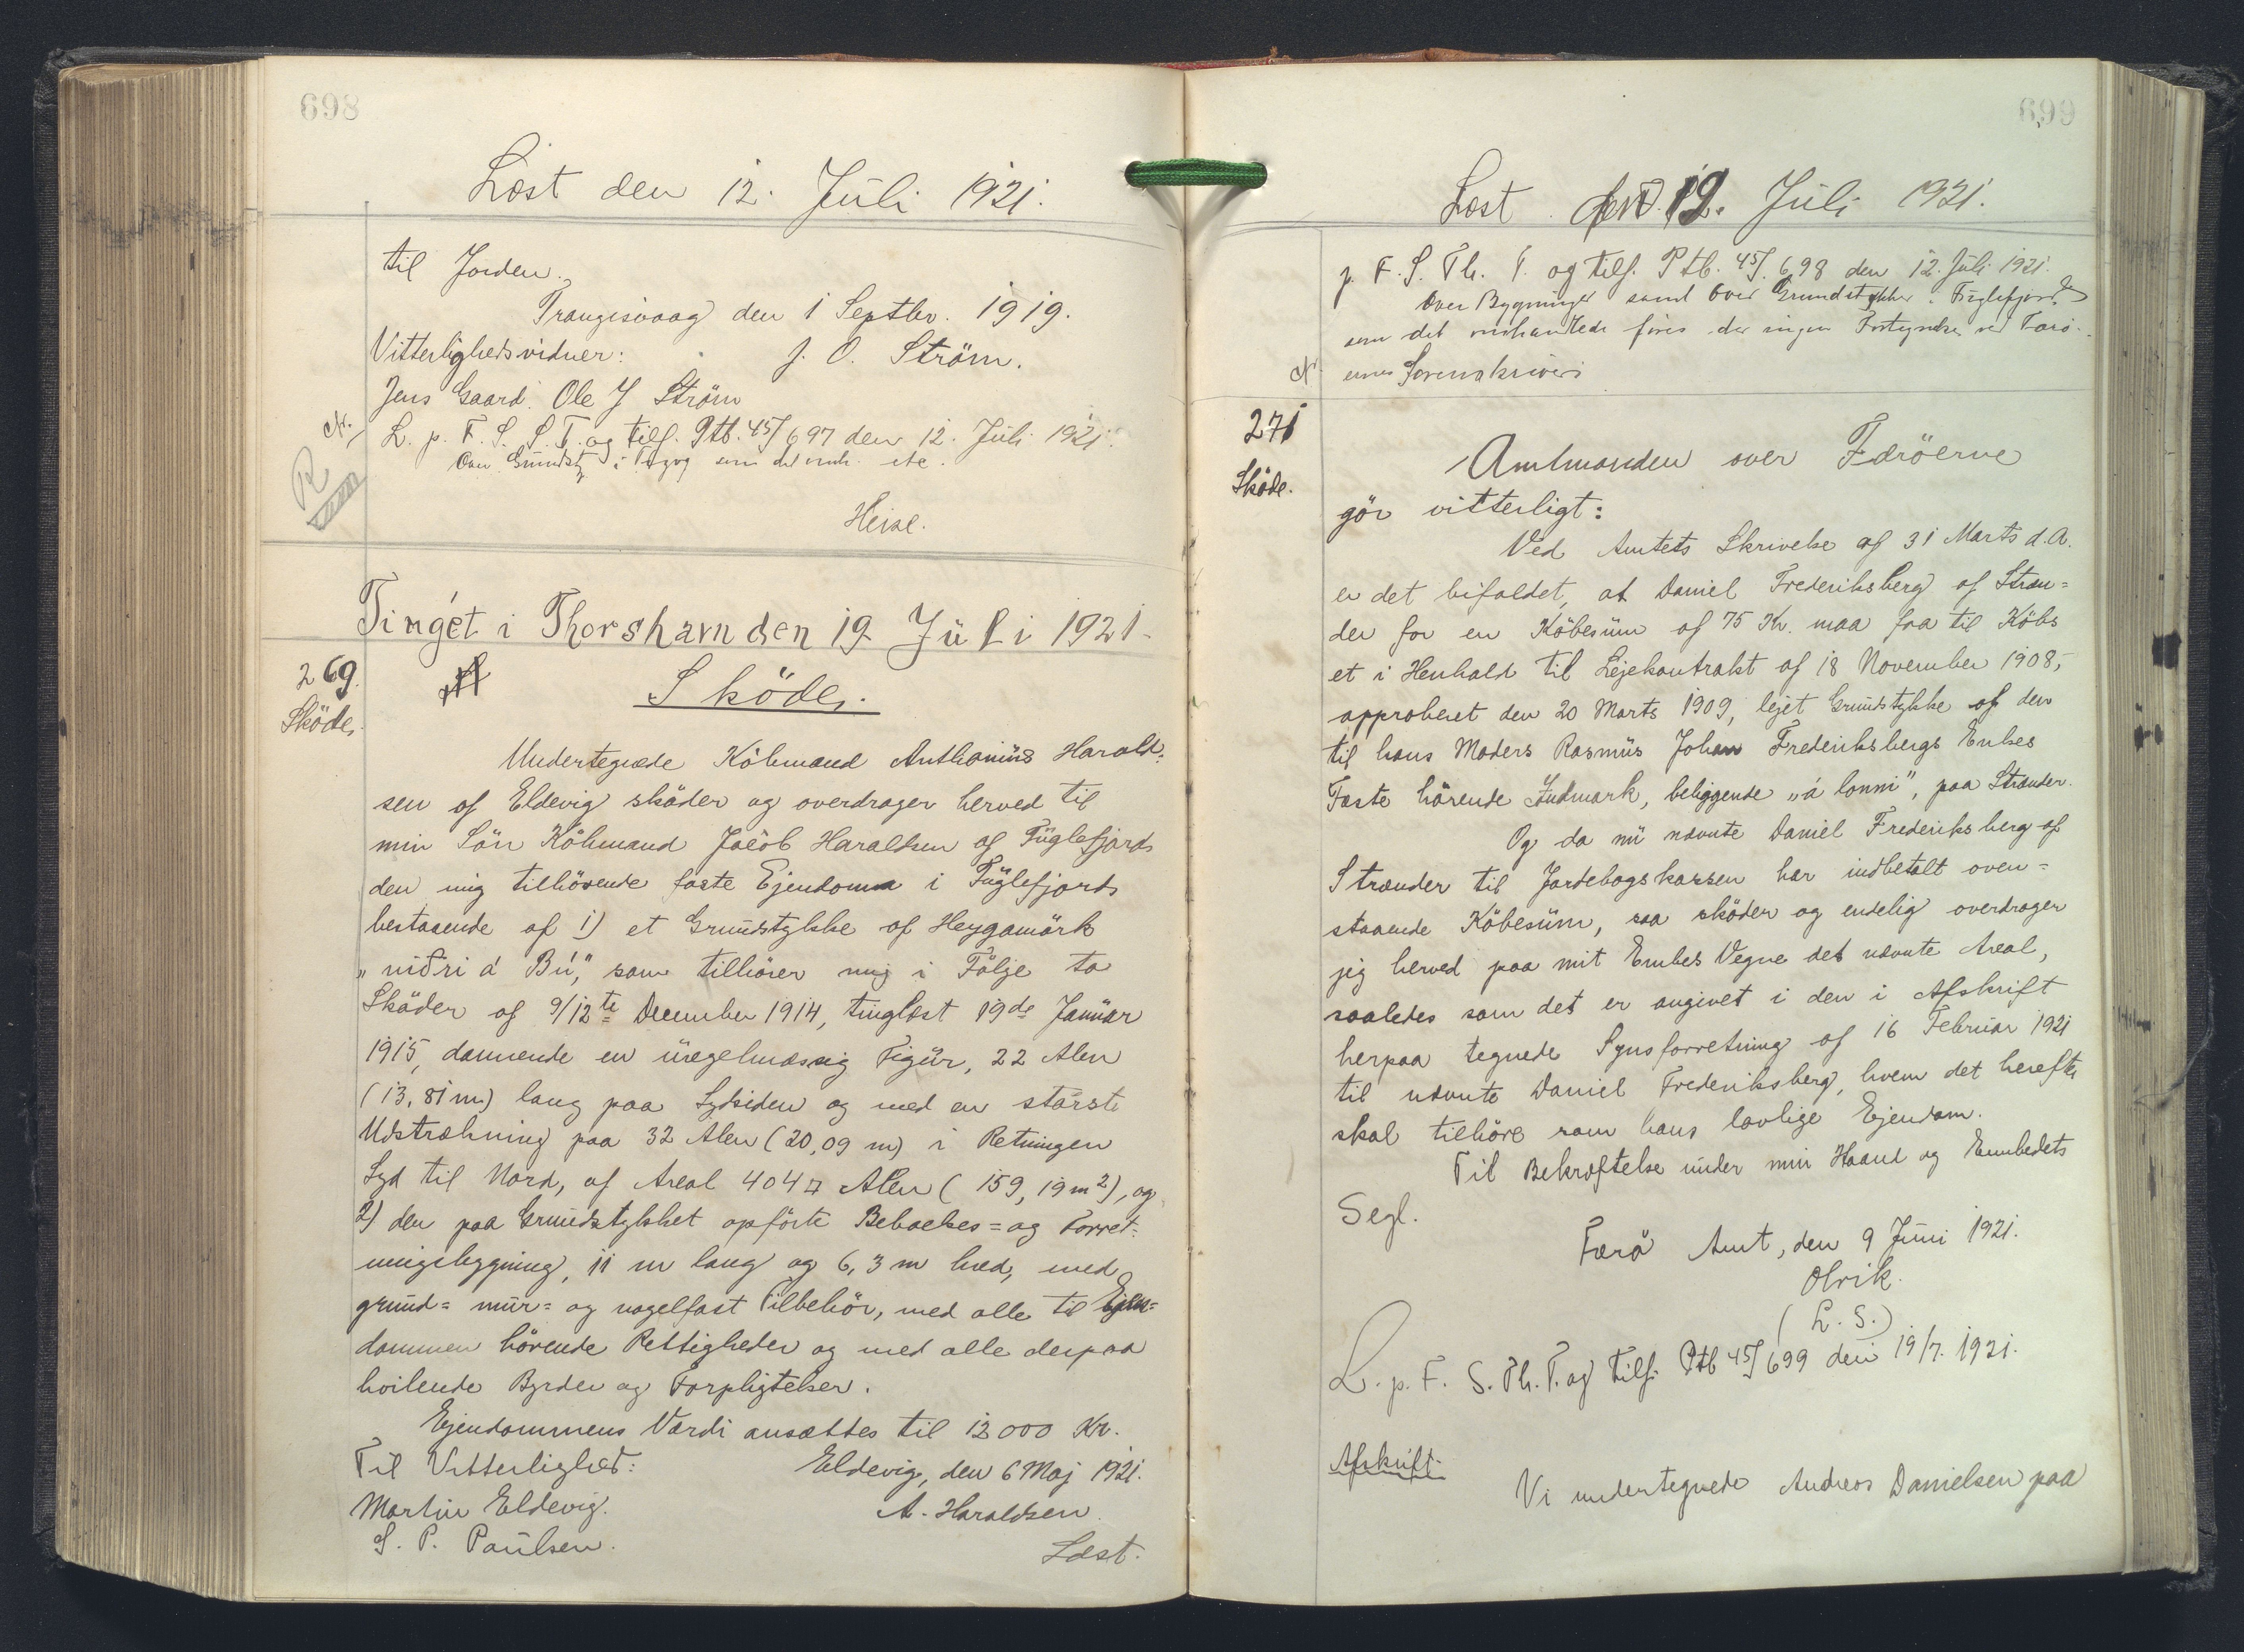 698
Læst den 12. Juli 1921.
til Jorden.
Trangisvaag den 1 Septbr. 1919.
Vitterlighedsvidner: J. O. Ström.
Jens Gaard. Ole J Ström
L. p. F. S. S. T. og tilf. Ptb. 45/697 den 12. Juli 1921.
Over Grundst i som det omh. etc.
R
Heise.
Tinget i Thorshavn den 19 Juli 1921.
269.
Sköde.
Sköde.
Undertegnede Köbmand Anthonius Harald-
sen af Eldevig sköder og overdrager herved til
min Sön Köbmand Jacob Haraldsen af Fuglefjord
den mig tilhörende faste Ejendom i Fuglefjord
bestaaende af 1) et Grundstykke af Heygamörk
"niðri á Bú", som tilhörer mig i Fölge to
Sköder af 9/12te December 1914, tinglæst 19de Januar
1915, dannende en uregelmæssig Figur, 22 Alen
(13,81 m) lang paa Sydsiden og med en störste
Udstrækning paa 32 Alen (20,09 m) i Retningen
Syd til Nord, af Areal 404 □ Alen (159,19 m²), og
2) den paa Grundstykket opförte Beboelses= og Forret-
ningsbygning, 11 m lang og 6,3 m bred, med
grund= mur= og nagelfast Tilbehör, med alle til Ejen=
dommen hörende Rettigheder og med alle derpaa
hvilende Byrder og Forpligtelser.
Ejendommens Værdi ansættes til 12000 Kr.
Til Vitterlighed: Eldevig, den 6 Maj 1921.
Martin Eldevig. A. Haraldsen.
S. P. Paulsen. Læst.
699
Læst den 19. Juli 1921.
p. F. S. Th. T. og tilf. Ptb. 45/698 den 12. Juli 1921.
Over Bygninger samt over Grundstykker i Fuglefjord
som det omhandlede föres der ingen Fortegnelse ved Færö-
ernes Sorenskriveri
271
Sköde.
Amtmanden over Færöerne
gör vitterligt:
Ved Amtets Skrivelse af 31 Marts d.A.
er det bifaldet, at Daniel Frederiksberg af Stræn=
der for en Köbesum af 75 Kr. maa faa til Köbs
et i Henhold til Lejekontrakt af 18 November 1908,
approberet den 20 Marts 1909, lejet Grundstykke af den
til hans Moders Rasmus Johan Frederiksbergs Enkes
Fæste hörende Indmark, beliggende "á lonni", paa Strænder.
Og da nu nævnte Daniel Frederiksberg af
Strænder til Jordebogskassen har indbetalt oven=
staaende Köbesum, saa sköder og endelig overdrager
jeg herved paa mit Embes Vegne det nævnte Areal,
saaledes som det er angivet i den i Afskrift
herpaa tegnede Synsforretning af 16 Februar 1921
til nævnte Daniel Frederiksberg, hvem det herefter
skal tilhöre som hans lovlige Ejendom.
Til Bekræftelse under min Haand og Embedets
Segl.
Færö Amt, den 9 Juni 1921.
Olrik.
(L. S.)
L. p. F. S. Th. T. og tilf. Ptb 45/699 den 19/7. 1921.
Afskrift.
Vi undertegnede Andreas Danielsen paa